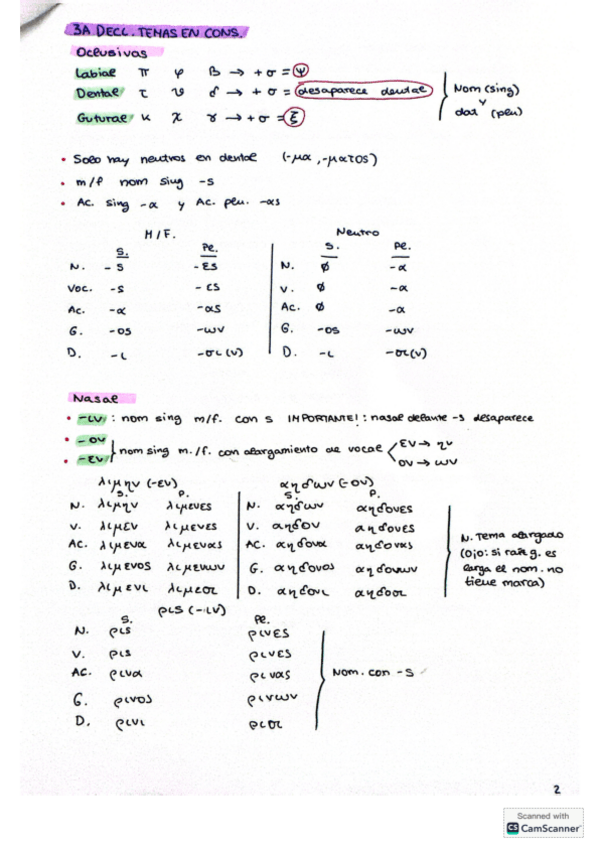 3A DECL. TEMAS EN CONS.
Oclusivas
Labial π φ β → + σ = ψ
Dental τ θ δ → + σ = desaparece dental
Gutural κ χ γ → + σ = ξ
Nom (sing)
y
dat (plu)
• Solo hay neutros en dental (-μα, -ματος)
• m/f nom sing -s
• Ac. sing -α y Ac. plu. -αs
M/F. Neutro
S. Pl. S. Pl.
N. -s -εs N. ∅ -α
Voc. -s -εs V. ∅ -α
Ac. -α -αs Ac. ∅ -α
G. -os -ων G. -os -ων
D. -ι -σι(ν) D. -ι -σι(ν)
Nasal
• -ιν : nom sing m/f. con s IMPORTANTE! : nasal delante -s desaparece
• -ον
• -εν
nom sing m./f. con alargamiento de vocal
εν → ην
ον → ων
λιμην (-εν) αηδων (-ον)
S. P. S. P.
N. λιμην λιμενεs N. αηδων αηδονεs
V. λιμεν λιμενεs V. αηδον αηδονεs
AC. λιμενα λιμεναs AC. αηδονα αηδοναs
G. λιμενος λιμενων G. αηδονος αηδονων
D. λιμενι λιμεσι D. αηδονι αηδοσι
N. Tema alargado
(Ojo: si raíz g. es
larga el nom. no
tiene marca)
ριs (-ιν)
S. Pl.
N. ριs ρινεs
V. ριs ρινεs
AC. ρινα ριναs
G. ρινος ρινων
D. ρινι ρισι
Nom. con -s
2
Scanned with
CS CamScanner